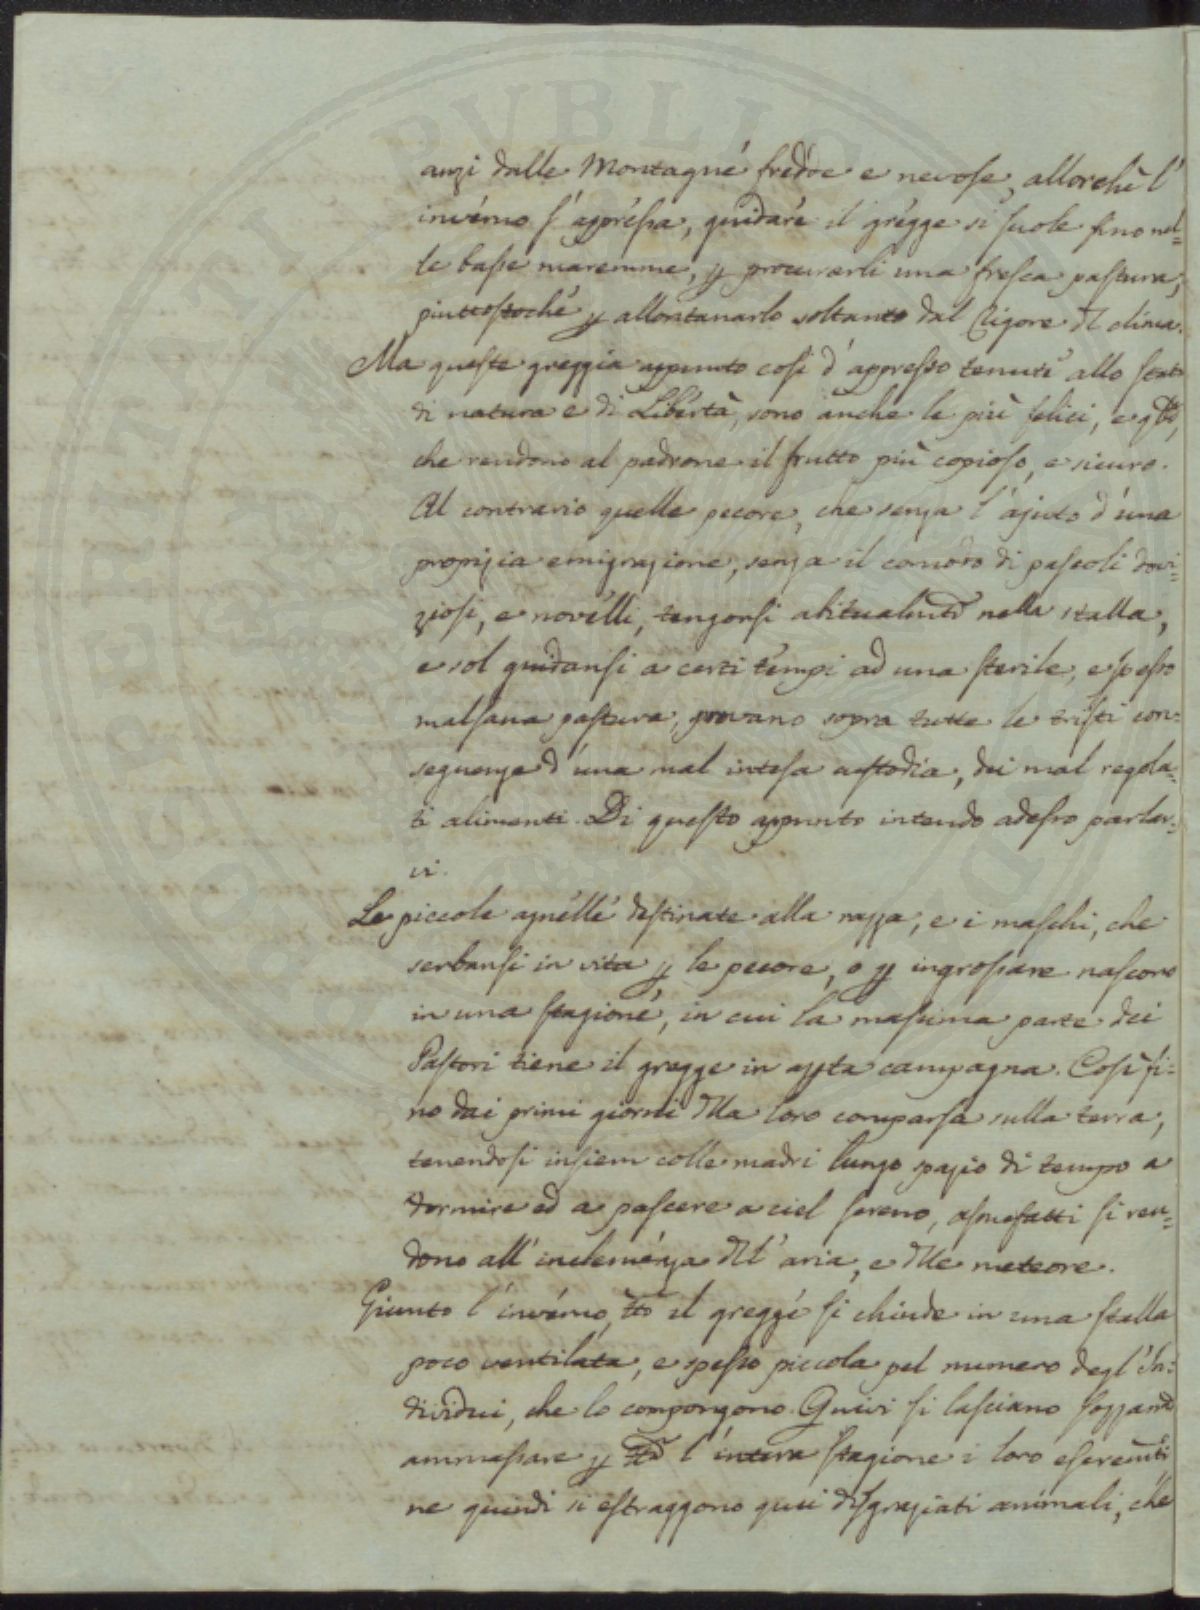 anzi dalle Montagne fredde e nevose, allorchè l'
inverno s' appressa, guidare il gregge si suole fino nel=
le basse maremme, p procurarli una fresca pastura,
piuttostochè p allontanarlo soltanto dal Rigore dl clima.
Ma queste greggia appunto così d' appresso tenute allo stato
di natura e di Libertà, sono anche le più felici, e qlle,
che rendono al padrone il frutto più copioso, e sicuro.
Al contrario quelle pecore, che senza l' ajuto d' una
propizia emigrazione, senza il comodo di pascoli dovi=
ziosi, e novelli, tengonsi abitualmte nella stalla,
e sol guidansi a certi tempi ad una sterile, e spesso
malsana pastura, provano sopra tutte le tristi con=
seguenze d' una mal intesa custodia, dei mal regola=
ti alimenti. Di questo appunto intendo adesso parlar=
vi.
Le piccole agnelle destinate alla razza, e i maschi, che
serbansi in vita p le pecore, o p ingrossare nascono
in una stagione, in cui la massima parte dei
Pastori tiene il gregge in appta campagna. Così fi=
no dai primi giorni dlla loro comparsa sulla terra,
tenendosi insiem colle madri lungo spazio di tempo a
dormire ed a pascere a ciel sereno, assuefatti si ren=
dono all' inclemenza dll' aria, e dlle meteore.
Giunto l' inverno, tto il gregge si chiude in una stalla
poco ventilata, e spesso piccola pel numero degl' In=
dividui, che lo compongono. Quivi si lasciano sozzamte
ammassare p tta l' intera stagione i loro escremti
ne quindi si estraggono quei disgraziati animali, che